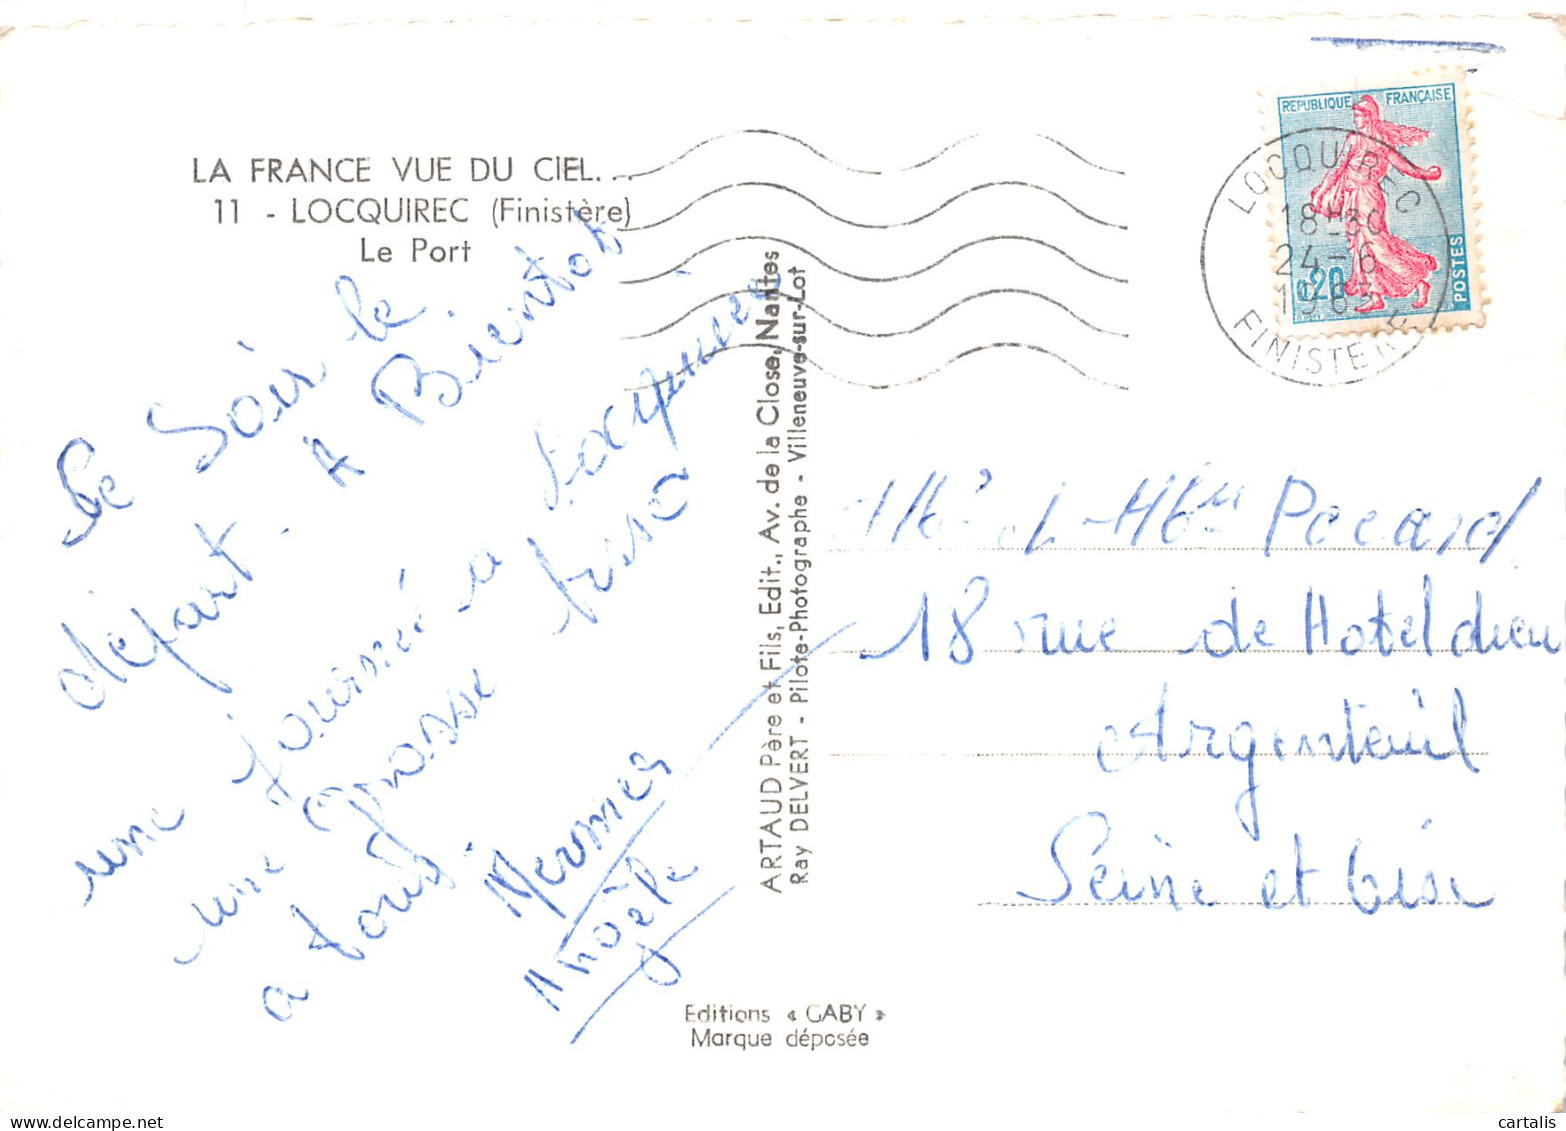 LA FRANCE VUE DU CIEL...
11 - LOCQUIREC (Finistère)
Le Port
REPUBLIQUE FRANÇAISE
0,20
POSTES
LOCQUIREC
18H30
24-6
1963
FINISTERE
Ce Soir le
départ. A Bientot
une journée a Locquirec
une grosse bise
a tous.
Angèle
ARTAUD Père et Fils, Edit., Av. de la Close, Nantes
Ray DELVERT - Pilote-Photographe - Villeneuve-sur-Lot
Mr et Mme Pecard
18 rue de Hotel dieu
Argenteuil
Seine et Oise
Editions « GABY »
Marque déposée
cartalis